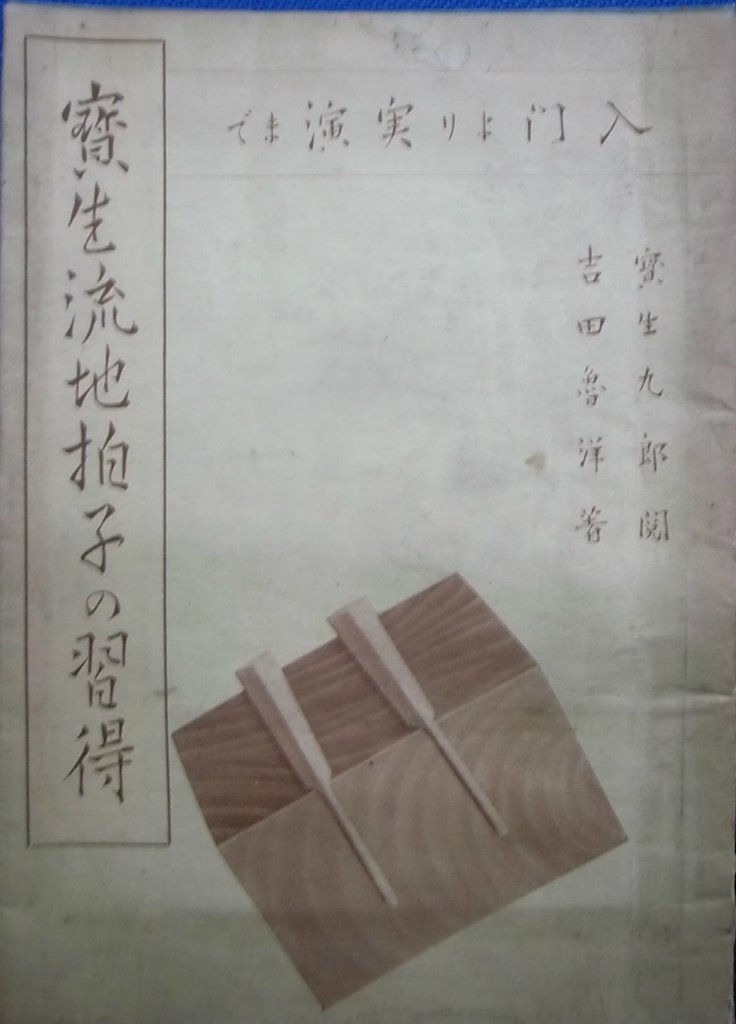 入門より実演まで
寳生九郎閲
吉田魯洋著
寳生流地拍子の習得